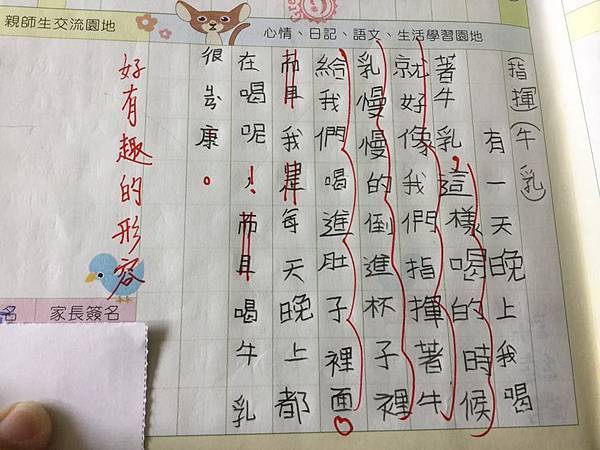 心情、日記、語文、生活學習園地
指揮(牛乳)
有一天晚上我喝
著牛乳，這樣喝的時候
就好像我們指揮著牛
乳慢慢的倒進杯子裡
給我們喝進肚子裡面。
我每天晚上都
在喝呢！喝牛乳
很康。
親師生交流園地
好有趣的形容
家長簽名
名